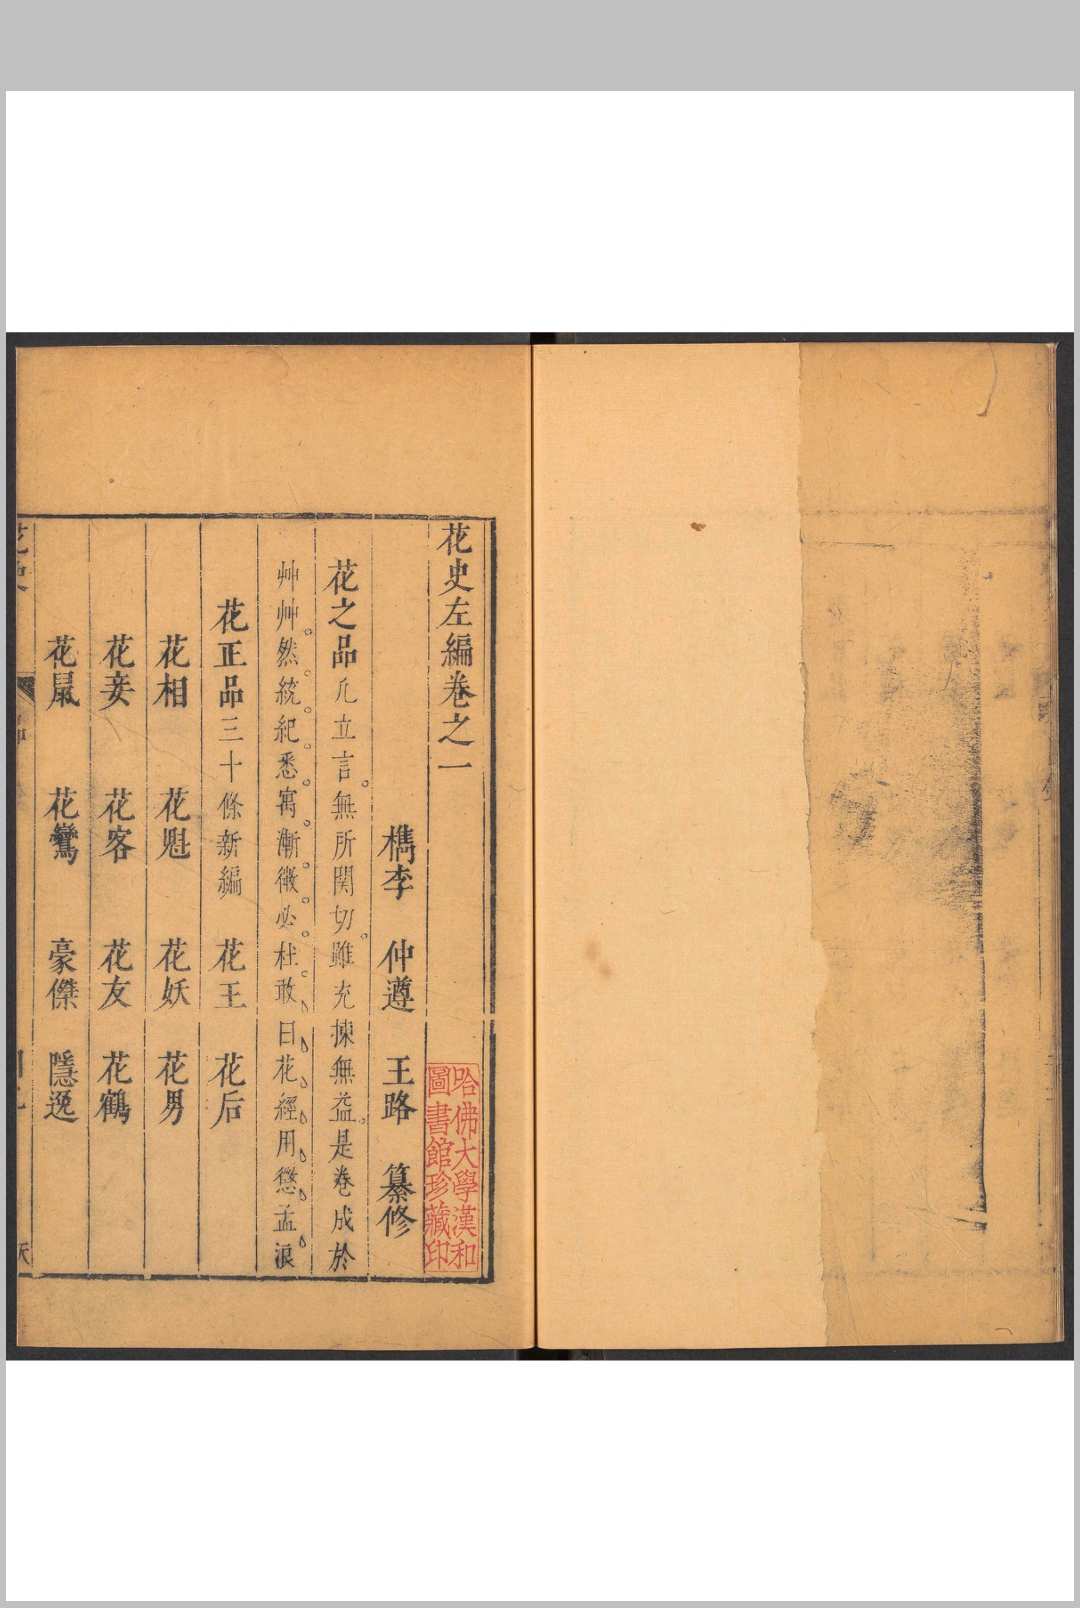 花史左編卷之一
檇李 仲遵 王路 纂修
花之品 凡立言無所關切雖充揀無益是卷成於
艸艸然統紀悉寓漸微必杜敢曰花經用懲孟浪
花正品 三十條新編 花王 花后
花相 花魁 花妖 花男
花妾 花客 花友 花鶴
花鼠 花鸞 豪傑 隱逸
哈佛大學漢和
圖書館珍藏印